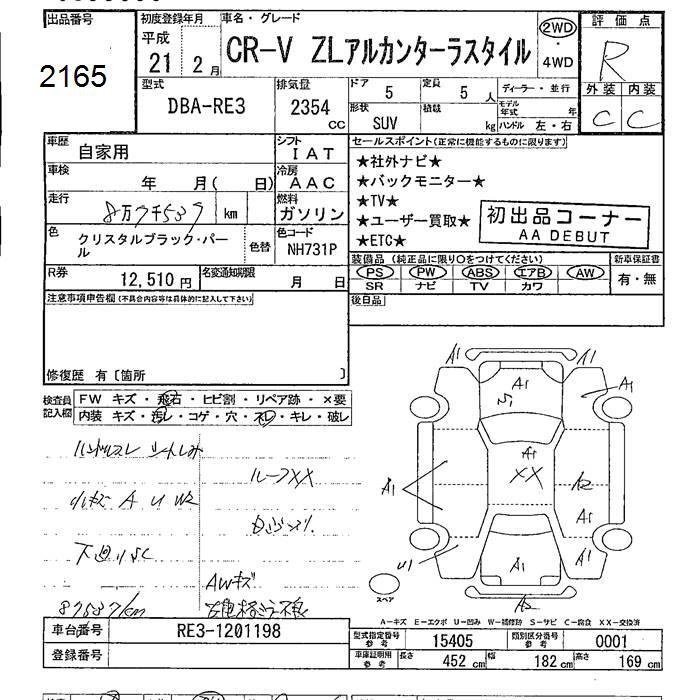 出品番号
2165
初度登録年月
平成
21 2 月
車名・グレード
CR-V ZLアルカンターラスタイル
2WD
・
4WD
評価点
R
外装 内装
C C
型式
DBA-RE3
排気量
2354
CC
ドア
5
定員
5 人
形状
SUV
積載
kg
ディーラー・並行
モデル年式 年
ハンドル 左・右
車歴
自家用
シフト
IAT
車検
年 月( 日)
冷房
AAC
走行
8万7千537
km
燃料
ガソリン
色
クリスタルブラック・パール
色替
色コード
NH731P
セールスポイント(正常に機能するものに限ります)
★社外ナビ★
★バックモニター★
★TV★
★ユーザー買取★
★ETC★
初出品コーナー
AA DEBUT
R券
12,510 円
名変通知期限
月 日
装備品(純正品に限り〇をつけてください)
PS PW ABS エアB AW
SR ナビ TV カワ
新車保証書
有・無
注意事項申告欄(不具合内容等は具体的に記入して下さい)
後日品
修復歴 有〔箇所 〕
検査員
記入欄
FW キズ・飛石・ヒビ割・リペア跡・×要
内装 キズ・汚レ・コゲ・穴・ネジ・キレ・破レ
ハンドルスレ シートしみ
ルーフXX
小キズ A U W2
下廻りSC
AWキズ
87537km
A1 A1
A1 A1
A1
XX
A1 A2
A1
U1 A1 A1
A2
スペア
A-キズ E-エクボ U-凹み W-補修跡 S-サビ C-腐食 XX-交換済
車台番号
RE3-1201198
登録番号
型式指定番号
参考
15405
類別区分番号
参考
0001
車庫証明用
参考
長さ
452 cm
幅
182 cm
高さ
169 cm